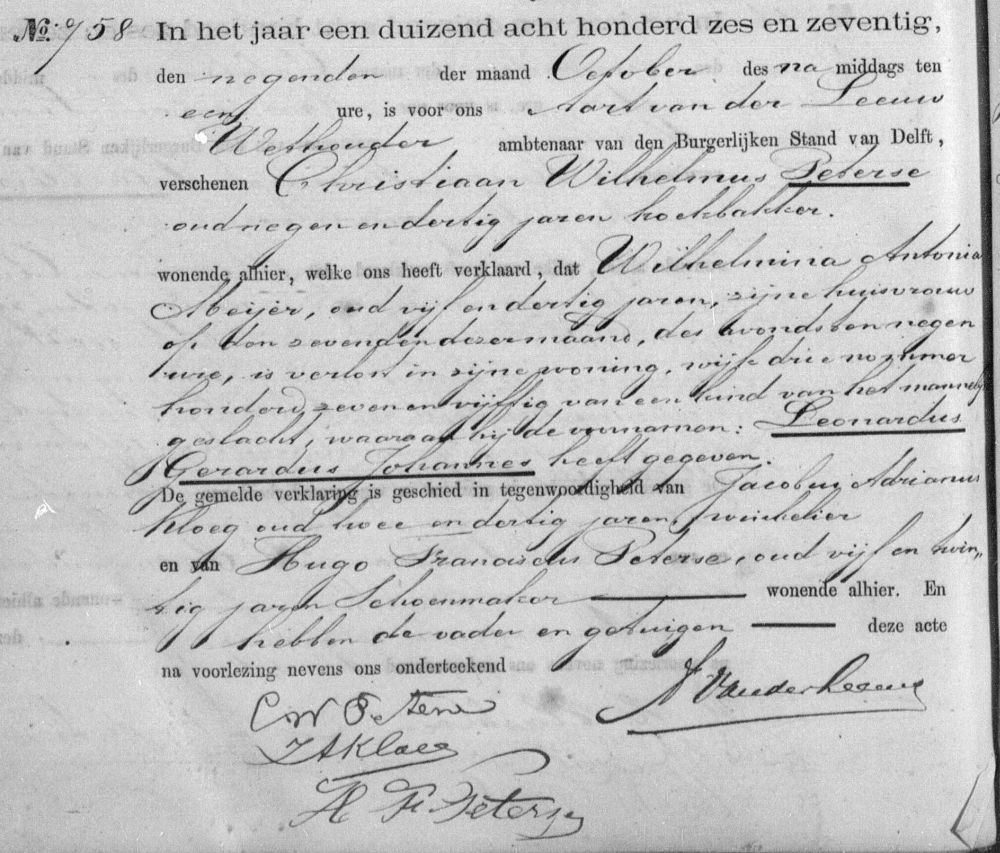 No. 758 In het jaar een duizend acht honderd zes en zeventig,
den negenden der maand October des na middags ten
een ure, is voor ons Aart van der Leeuw
Wethouder ambtenaar van den Burgerlijken Stand van Delft,
verschenen Christiaan Wilhelmus Peterse
oud negen en dertig jaren koekbakker.
wonende alhier, welke ons heeft verklaard, dat Wilhelmina Antonia
Meijer, oud vijf en dertig jaren, zijne huisvrouw
op den zevenden dezer maand, des avonds ten negen
ure, is verlost in zijne woning, wijk drie nommer
honderd zeven en vijftig van een kind van het mannelijk
geslacht, waaraan hij de voornamen: Leonardus
Gerardus Johannes heeft gegeven.
De gemelde verklaring is geschied in tegenwoordigheid van Jacobus Adrianus
Kloeg oud twee en dertig jaren, winkelier
en van Hugo Franciscus Peterse, oud vijf en twin-
tig jaren Schoenmaker wonende alhier. En
hebben de vader en getuigen deze acte
na voorlezing nevens ons onderteekend
C W Peterse A Van der Leeuw
J A Kloeg
H. F. Peterse